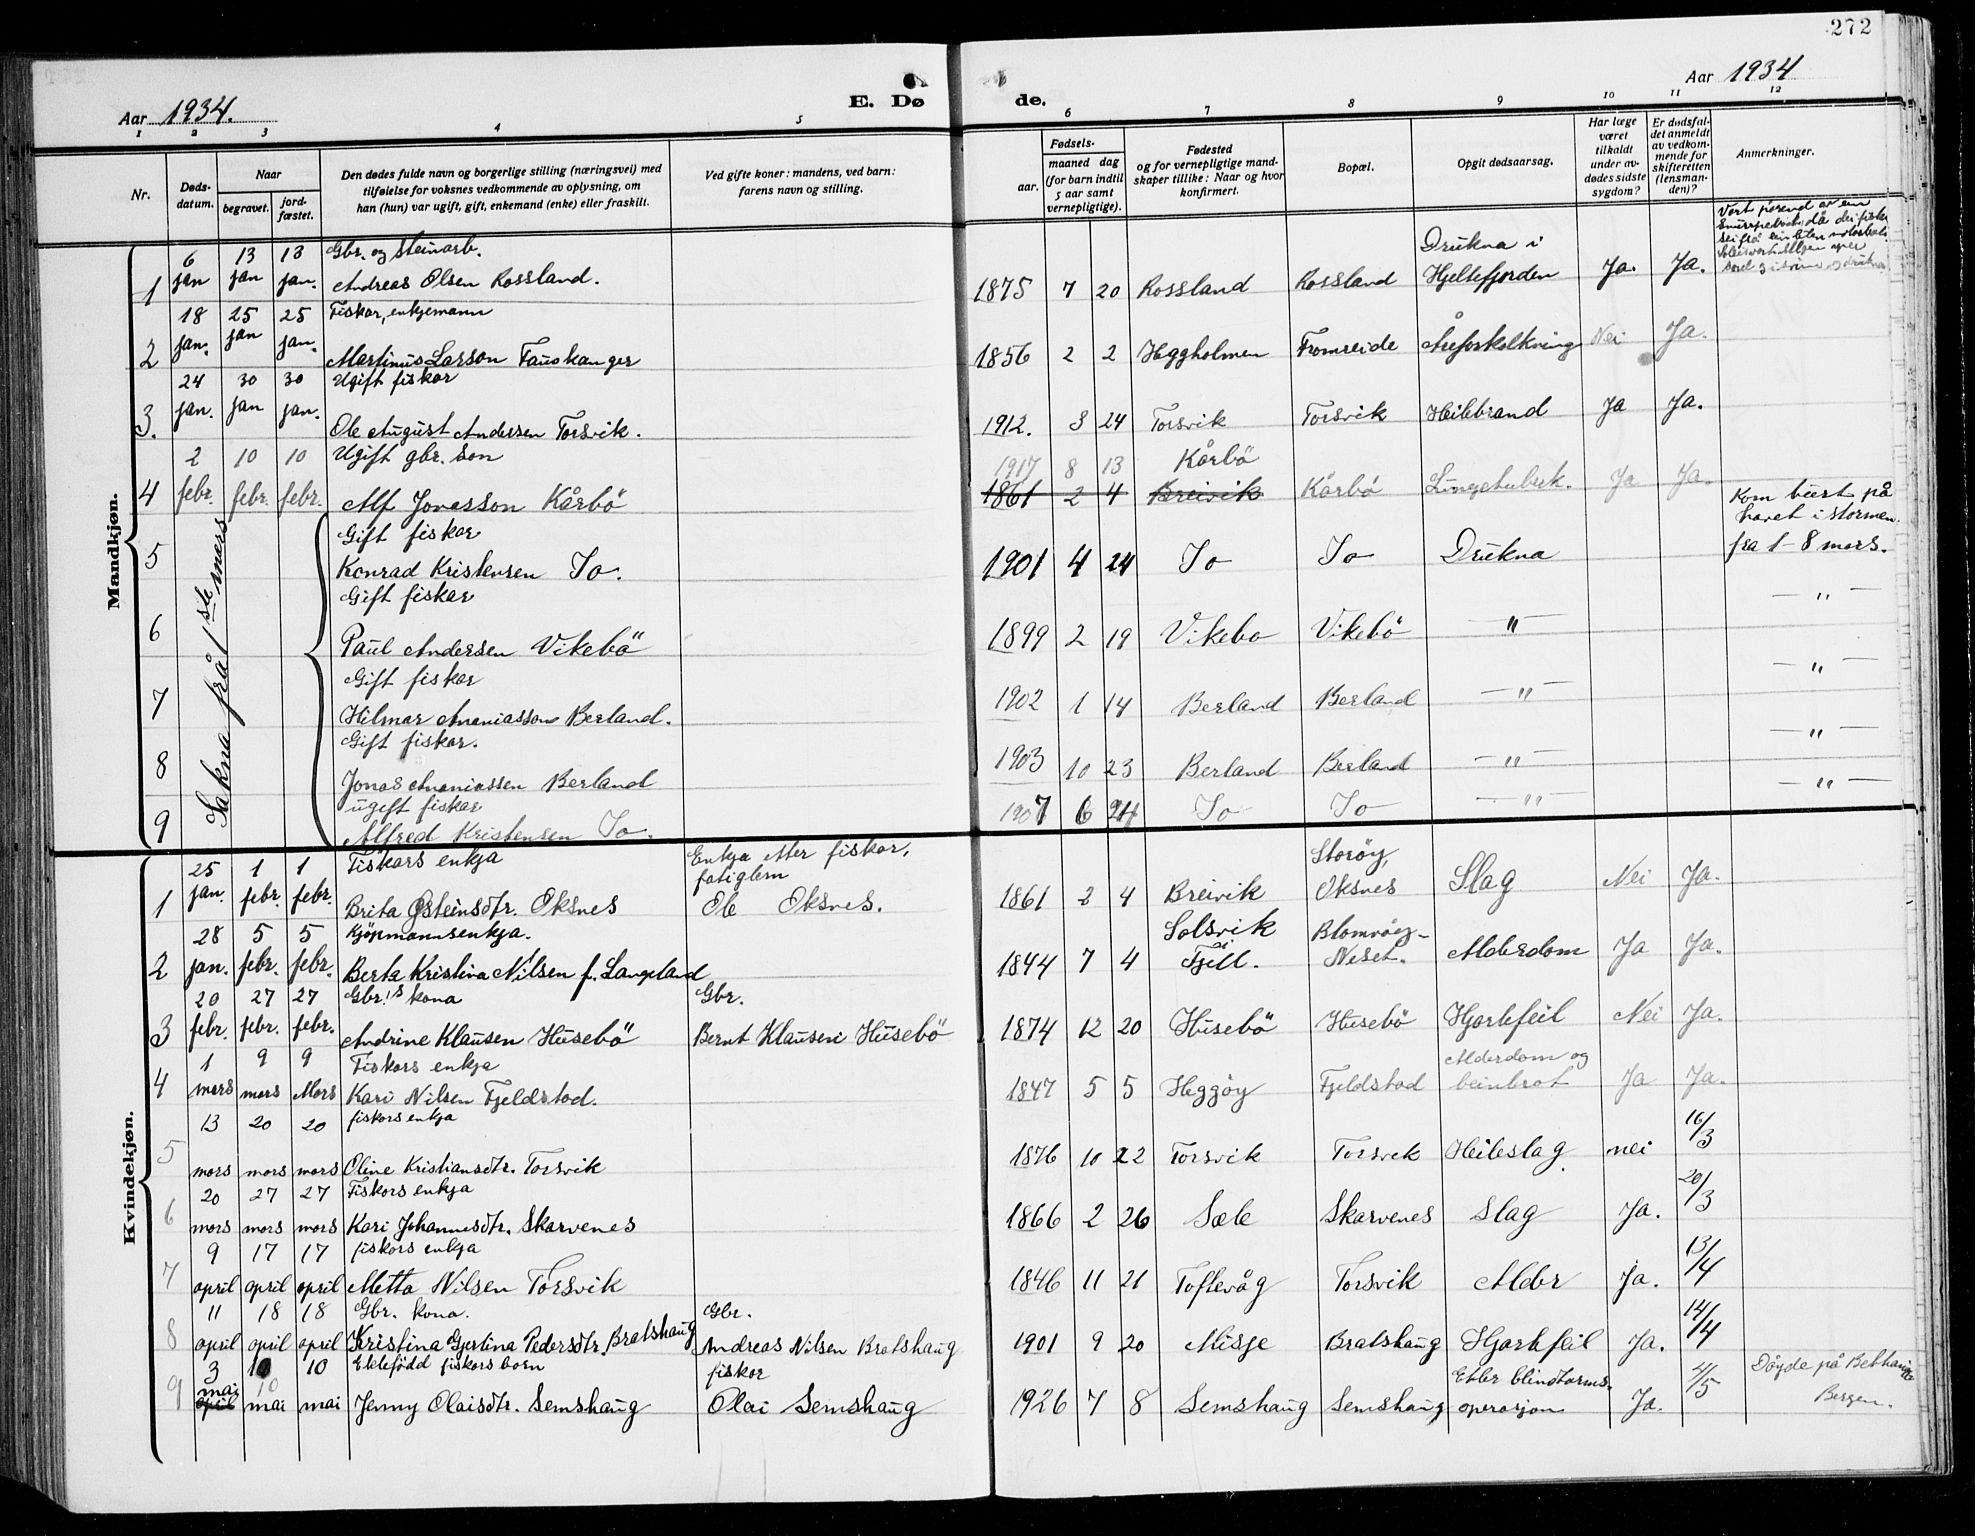 272
Aar 1934.
E. Dø
de.
Aar 1934
1 2 3 4 5 6 7 8 9 10 11 12
Nr.
Døds-
datum.
Naar
begravet.
jord-
fæstet.
Den dødes fulde navn og borgerlige stilling (næringsvei) med
tilføielse for voksnes vedkommende av oplysning, om
han (hun) var ugift, gift, enkemand (enke) eller fraskilt.
Ved gifte koner: mandens, ved barn:
farens navn og stilling.
Fødsels-
aar.
maaned dag
(for barn indtil
5 aar samt
vernepligtige).
Fødested
og for vernepligtige mand-
skaper tillike: Naar og hvor
konfirmert.
Bopæl.
Opgit dødsaarsag.
Har læge
været
tilkaldt
under av-
dødes sidste
sygdom?
Er dødsfal-
det anmeldt
av vedkom-
mende for
skifteretten
(lensman-
den)?
Anmerkninger.
Mandkjøn.
6 13 13 Gbr. og Steinarb. Drukna i
1 jan jan jan. Andreas Olsen Rossland. 1875 7 20 Rossland Rossland Hjeltefjorden Ja. Ja.
18 25 25 Fiskar, enkjemann
2 jan. jan jan. Martinus Larson Fauskanger 1856 2 2 Heggholmen Fromreide Åreforkalkning Nei Ja.
24 30 30 Ugift fiskar
3. jan. jan jan. Ole August Andersen Torsvik. 1912. 3 24 Torsvik Torsvik Heilebrand Ja Ja.
2 10 10 Ugift gbr. son 1917 8 13 Kårbö
4 febr. febr. febr. Alf Jonasson Kårbö 1861 2 4 Breivik Kårbö Lungetuberk. Ja Ja.
Sakna frå 1ste mars
Gift fiskar Kom burt på
havet i stormen
5 Konrad Kristensen Io. 1901 4 24 Io Io Drukna fra 1-8 mars.
Gift fiskar
6 Paul Andersen Vikebö 1899 2 19 Vikebo Vikebö " — " —
Gift fiskar
7 Hilmar Ananiasson Berland. 1902 1 14 Berland Berland — " — — " —
Gift fiskar.
8 Jonas Ananiassen Berland 1903 10 23 Berland Berland — " — — " —
ugift fiskar
9 Alfred Kristensen Io. 1907 6 24 Io Io — " — — " —
Kvindekjøn.
25 1 1 Fiskars enkja Enkja etter fiskar, Storöy,
fatiglem
1 jan. febr. febr. Brita Østeinsdtr. Oksnes Ole Oksnes. 1861 2 4 Breivik Oksnes Slag Nei Ja.
28 5 5 Kjöpmannsenkja. Solsvik Blomvöy-
2 jan. febr. febr. Berta Kristina Nilsen f. Langeland 1844 7 4 i Fjell. Neset. Alderdom Ja Ja.
20 27 27 Gbr.'s kona Gbr.
3 febr. febr. febr. Andrine Klausen Husebö Bernt Klausen Husebö 1874 12 20 Husebö Husebö Hjartefeil Nei Ja.
1 9 9 Fiskars enkja Alderdom og
4 mars mars Mars Kari Nilsen Fjeldstad. 1847 5 5 Heggöy Fjeldstad beinbrot Ja Ja.
13 20 20 fiskars enkja
5 mars mars mars Oline Kristiansdtr. Torsvik 1876 10 22 Torsvik Torsvik Heileslag. nei 16/3
20 27 27 Fiskars enkja
6 mars mars mars Kari Johannesdtr. Skarvenes 1866 2 26 Sæle Skarvenes Slag Ja. 20/3
9 17 17 fiskars enkja
7 april april april Metta Nilsen Torsvik 1846 11 21 Toftevåg Torsvik Alder Ja. 13/4
11 18 18 Gbr. kona. Gbr.
8 april april april Kristina Gjertina Pedersdtr. Bratshaug Andreas Nilsen Bratshaug 1901 9 20 Misje Bratshaug Hjartefeil Ja. 14/4
3 10 10 Ektefödd fiskars born fiskar Etter blindtarms-
9 mai april 10 mai mai Jenny Olaisdtr. Semshaug Olai Semshaug 1926 7 8 Semshaug Semshaug operasjon Ja. 4/5 Döyde på Bethania
Bergen.